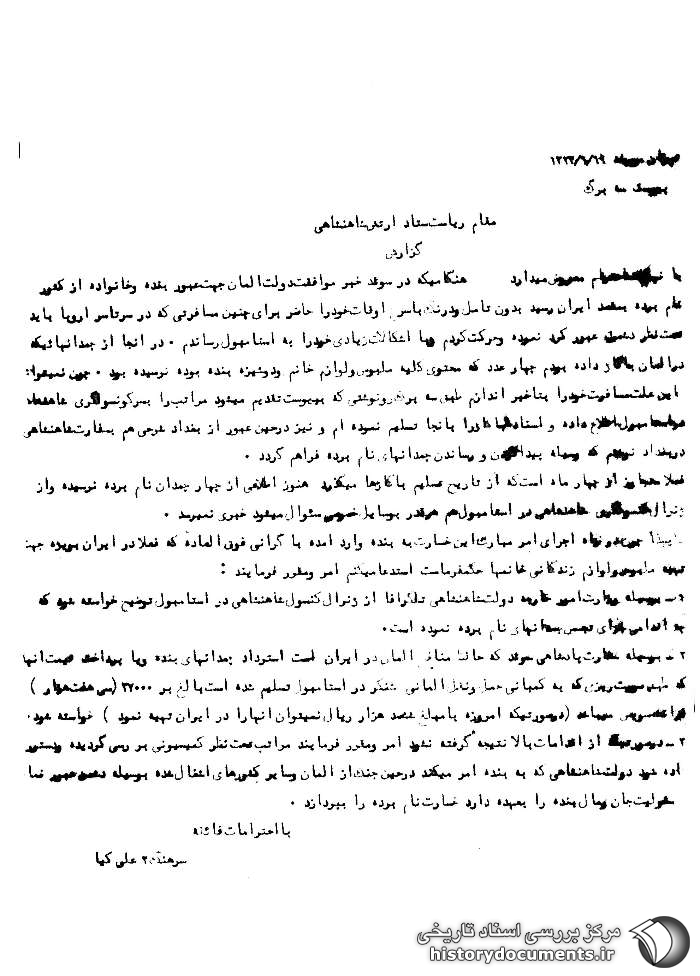 ۱۳۲۲/۶/۱۹
پیوست سه برگ
مقام ریاست ستاد ارتش شاهنشاهی
گزارش
معروض میدارد هنگامیکه در سوئد خبر موافقت دولت المان جهت عبور بنده و خانواده از کشور
نام برده بمقصد ایران رسید بدون تامل و درنگ باسر اوقات خودرا حاضر برای چنین مسافرتی که در سرتاسر اروپا باید
تحت نظر دشمن عبور کرد نموده و حرکت کردم وبا اشکالات زیادی خودرا به استامبول رساندم ۰ در انجا از چمدانهائیکه
در المان بکار داده بودم چهار عدد که محتوی کلیه ملبوس ولوازم خانم ودوشیزه بنده بوده نرسیده بود ۰ چون نمیتوان
این علت مسافرت خودرا بتاخیر اندازم طبق سه برگ رونوشتی که بپیوست تقدیم میشود مراتب را بسرکونسولگری شاهنشاهی
اطلاع داده و اسناد را بانجا تسلیم نموده ام و نیز درحین عبور از بغداد شرحی هم بسفارت شاهنشاهی
در بغداد نوشتم که وسیله و رساندن چمدانهای نام برده فراهم گردد ۰
فعلا از چهار ماه است که از تاریخ تسلیم میگذرد هنوز اطلاعی از چهار چمدان نام برده نرسیده واز
شاهنشاهی در استامبول هم هرقدر بوسایل خصوصی سئوال میشود خبری نمیرسد ۰
اجرای امر مبارک این خسارت به بنده وارد امده با گرانی فوق العاده که فعلا در ایران بویژه جهت
تهیه ملبوس ولوازم زندگانی خانمها حکمفرماست استدعا میکنم امر ومقرر فرمایند :
۱ـ بوسیله وزارت امور خارجه دولت شاهنشاهی تلگرافا از ژنرال کنسول شاهنشاهی در استامبول توضیح خواسته شود که
چه اقدامی برای چمدانهای نام برده نموده است۰
۲ ـ بوسیله سفارت پادشاهی سوئد که حافظ منافع المان در ایران است استرداد چمدانهای بنده ویا پرداخت قیمت انها
که طبق صورت ریزی که به کمپانی حمل ونقل المانی شنکر در استامبول تسلیم شده است بالغ بر ۳۷۰۰۰ (سی هفت هزار )
میباشد (درصورتیکه امروزه با مبلغ هزار ریال نمیتوان انها را در ایران تهیه نمود ) خواسته شود۰
۳ ـ درصورتیکه از اقدامات بالا نتیجه گرفته نشود امر ومقرر فرمایند مراتب تحت نظر کمیسیونی بررسی گردیده ودستور
داده شود دولت شاهنشاهی که به بنده امر میکند درحین جنگ از المان وسایر کشورهای اشغال شده بوسیله دشمن عبور نما
مسئولیت جان ومال بنده را بعهده دارد خسارت نام برده را بپردازد ۰
با احترامات فائقه
سرهنگ ۲ علی کیا
مرکز بررسی اسناد تاریخی
historydocuments.ir